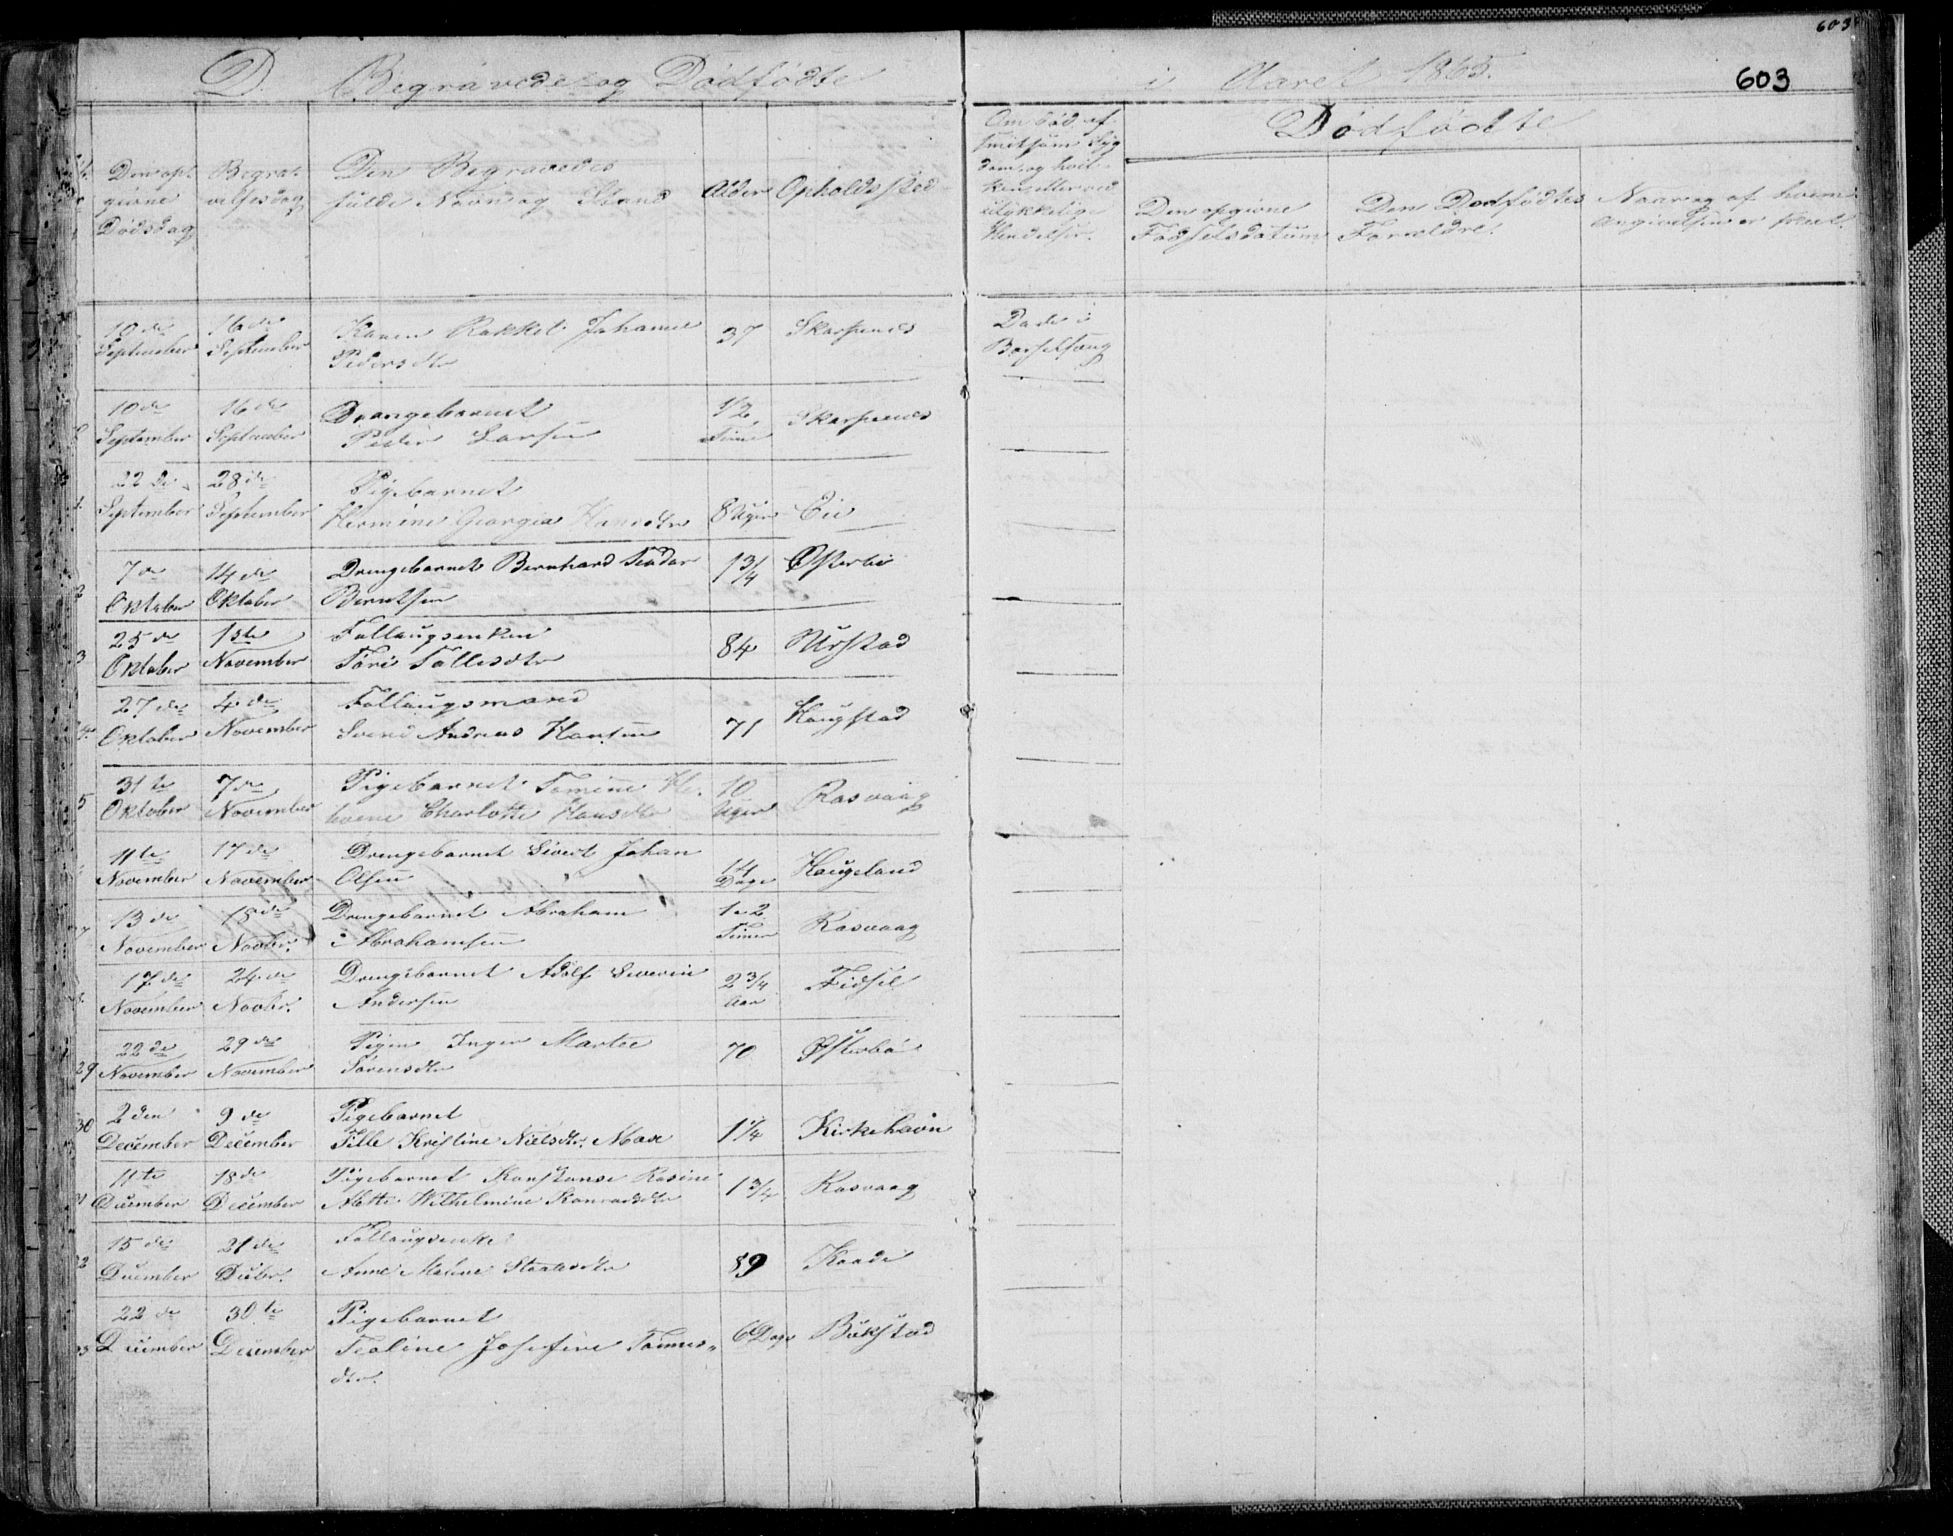 603
D. Begravede og Dødfødte i Aaret 1865.
603
Den op-
givne
Dødsdag
Begra-
velsesdag
Den Begravedes
fulde Navn og Stand
Alder
Opholdssted
Om død af
smitsom Syg
dom, og hvil-
ken, eller ved
ulykkelige
Hendelser.
Dødfødte
Den opgivne
Fødselsdatum
Den Dødfødtes
Forældre.
Naar og af hvem
Angivelsen er skeet.
10de September
16de September
Karen Rakkel Johanne
Pedersdtr
37
Skarpenes
Døde i
Barselseng
10de September
16de September
Drengebarnet
Peder Larsen
1/2
Time
Skarpenes
22de September
28de September
Pigebarnet
Hermine Georgia Hansdtr
8 Uger
Eie
7de Oktober
14de Oktober
Drengebarnet Bernhard Teodor
Berntsen
1 3/4
Østerbø
25de Oktober
1ste November
3
Follaugsenken
Tori Tollesdtr
84
Urstad
27de Oktober
4de November
4
Follaugsmand
Svend Andreas Hansen
71
Haugstad
31te Oktober
7de November
5
Pigebarnet Tomine He-
lvene Charlotte Hansdtr
10
Uger
Rasvaag
11te November
17de November
Drengebarnet Sivert Johan
Olsen
14
Dage
Haugeland
13de November
18de Novbr.
7
Drengebarnet Abraham
Abrahamsen
1 a 2
Timer
Rasvaag
17de November
24de Novbr.
Drengebarnet Adolf Severin
Andersen
2 3/4
Aar
Fidsel
22de November
29de November
29
Pigen Inger Martee
Sørensdtr
70
Østerbø
2den December
9de December
30
Pigebarnet
Tille Kristine Nielsdtr. Moe
1 1/4
Kirkehavn
11te December
18de December
Pigebarnet Konstanse Rosine
Mette Wilhelmine Konradsdtr
1 3/4
Rasvaag
15de December
21de Decbr.
2
Follaugsenke
Anne Malene Staalesdtr
89
Kaade
22de December
30te December
Pigebarnet
Tealine Josefine Tønnes-
dtr.
6 Dage
Bukstad